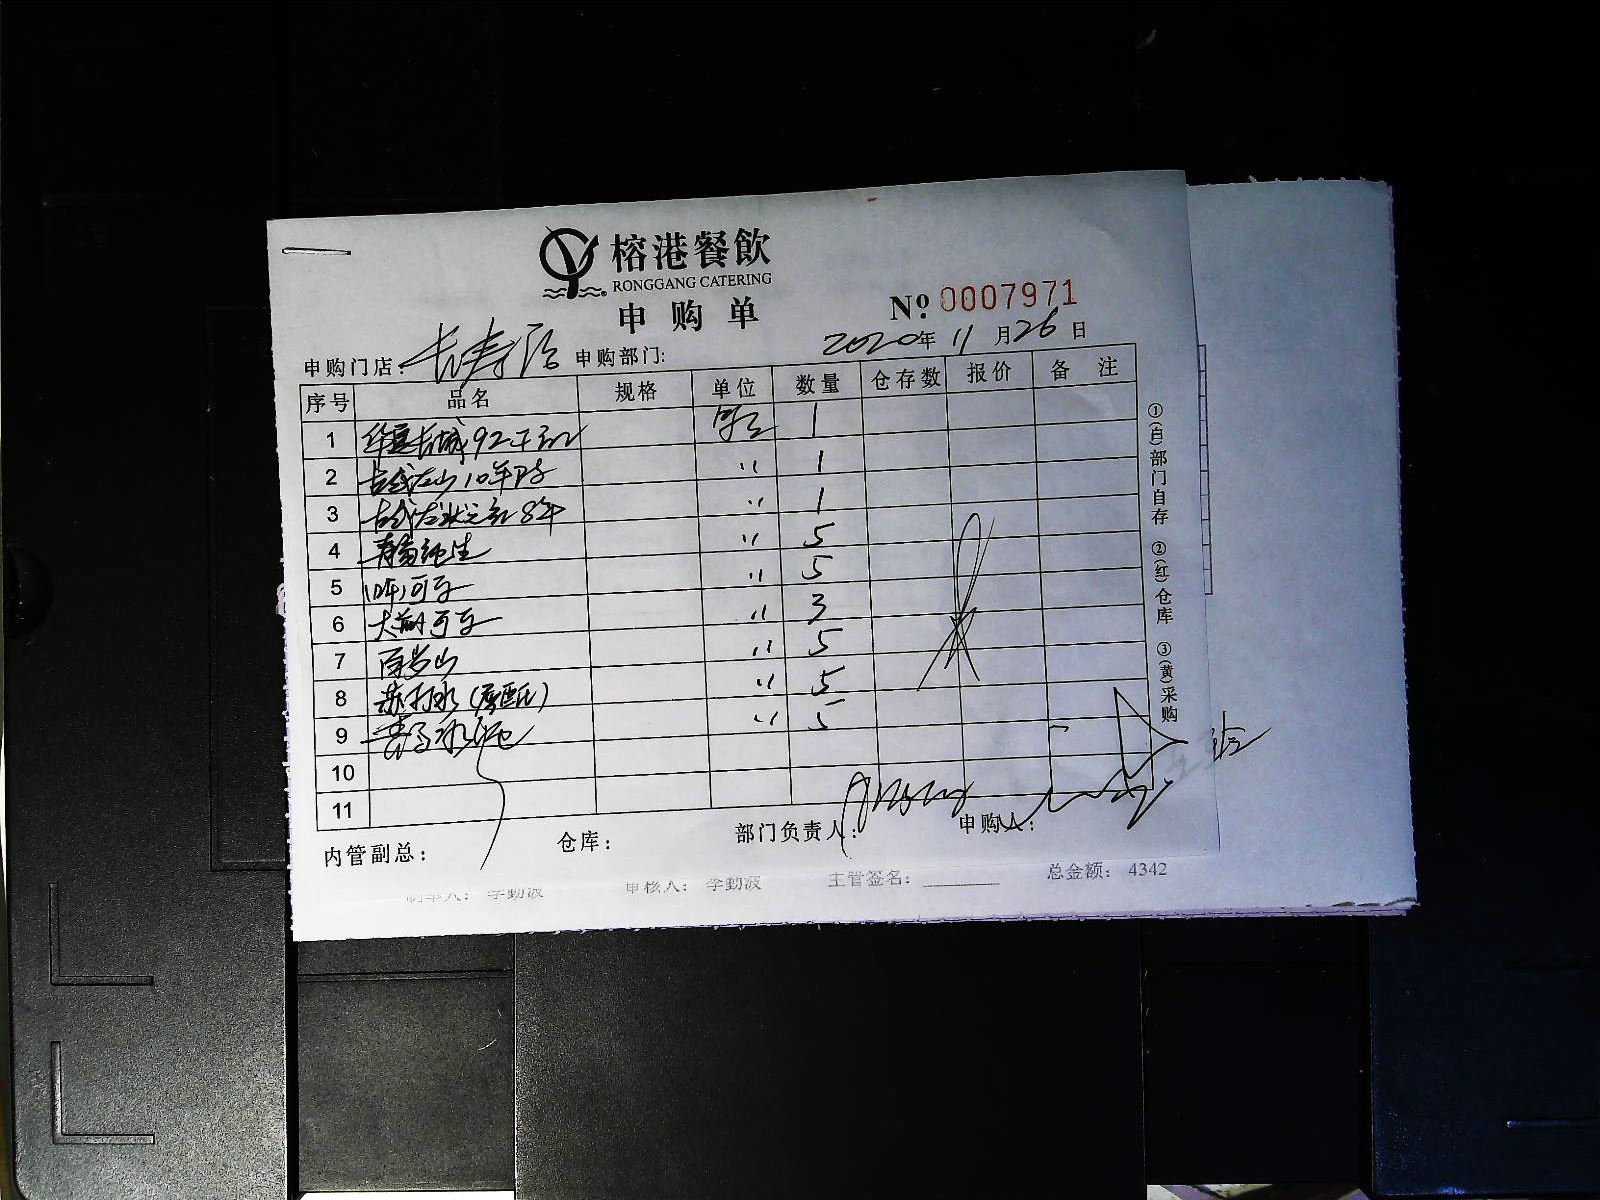 榕港餐飲
RONGGANG CATERING
申购单
№ 0007971
2020年 11月 26日
申购门店: 长寿店 申购部门:
序号 品名 规格 单位 数量 仓存数 报价 备注
1 华夏长城92干红 1
2 古越龙山10年 〃 1
3 古越龙状元红8年 〃 1
4 青岛纯生 〃 5
5 可乐 〃 5
6 大 可乐 〃 3
7 百岁山 〃 5
8 苏打水 〃 5
9 〃 5
10
11
内管副总: 仓库: 部门负责人: 申购人:
①(白)部门自存 ②(红)仓库 ③(黄)采购
制单人: 李勤波 审核人: 李勤波 主管签名: 总金额: 4342